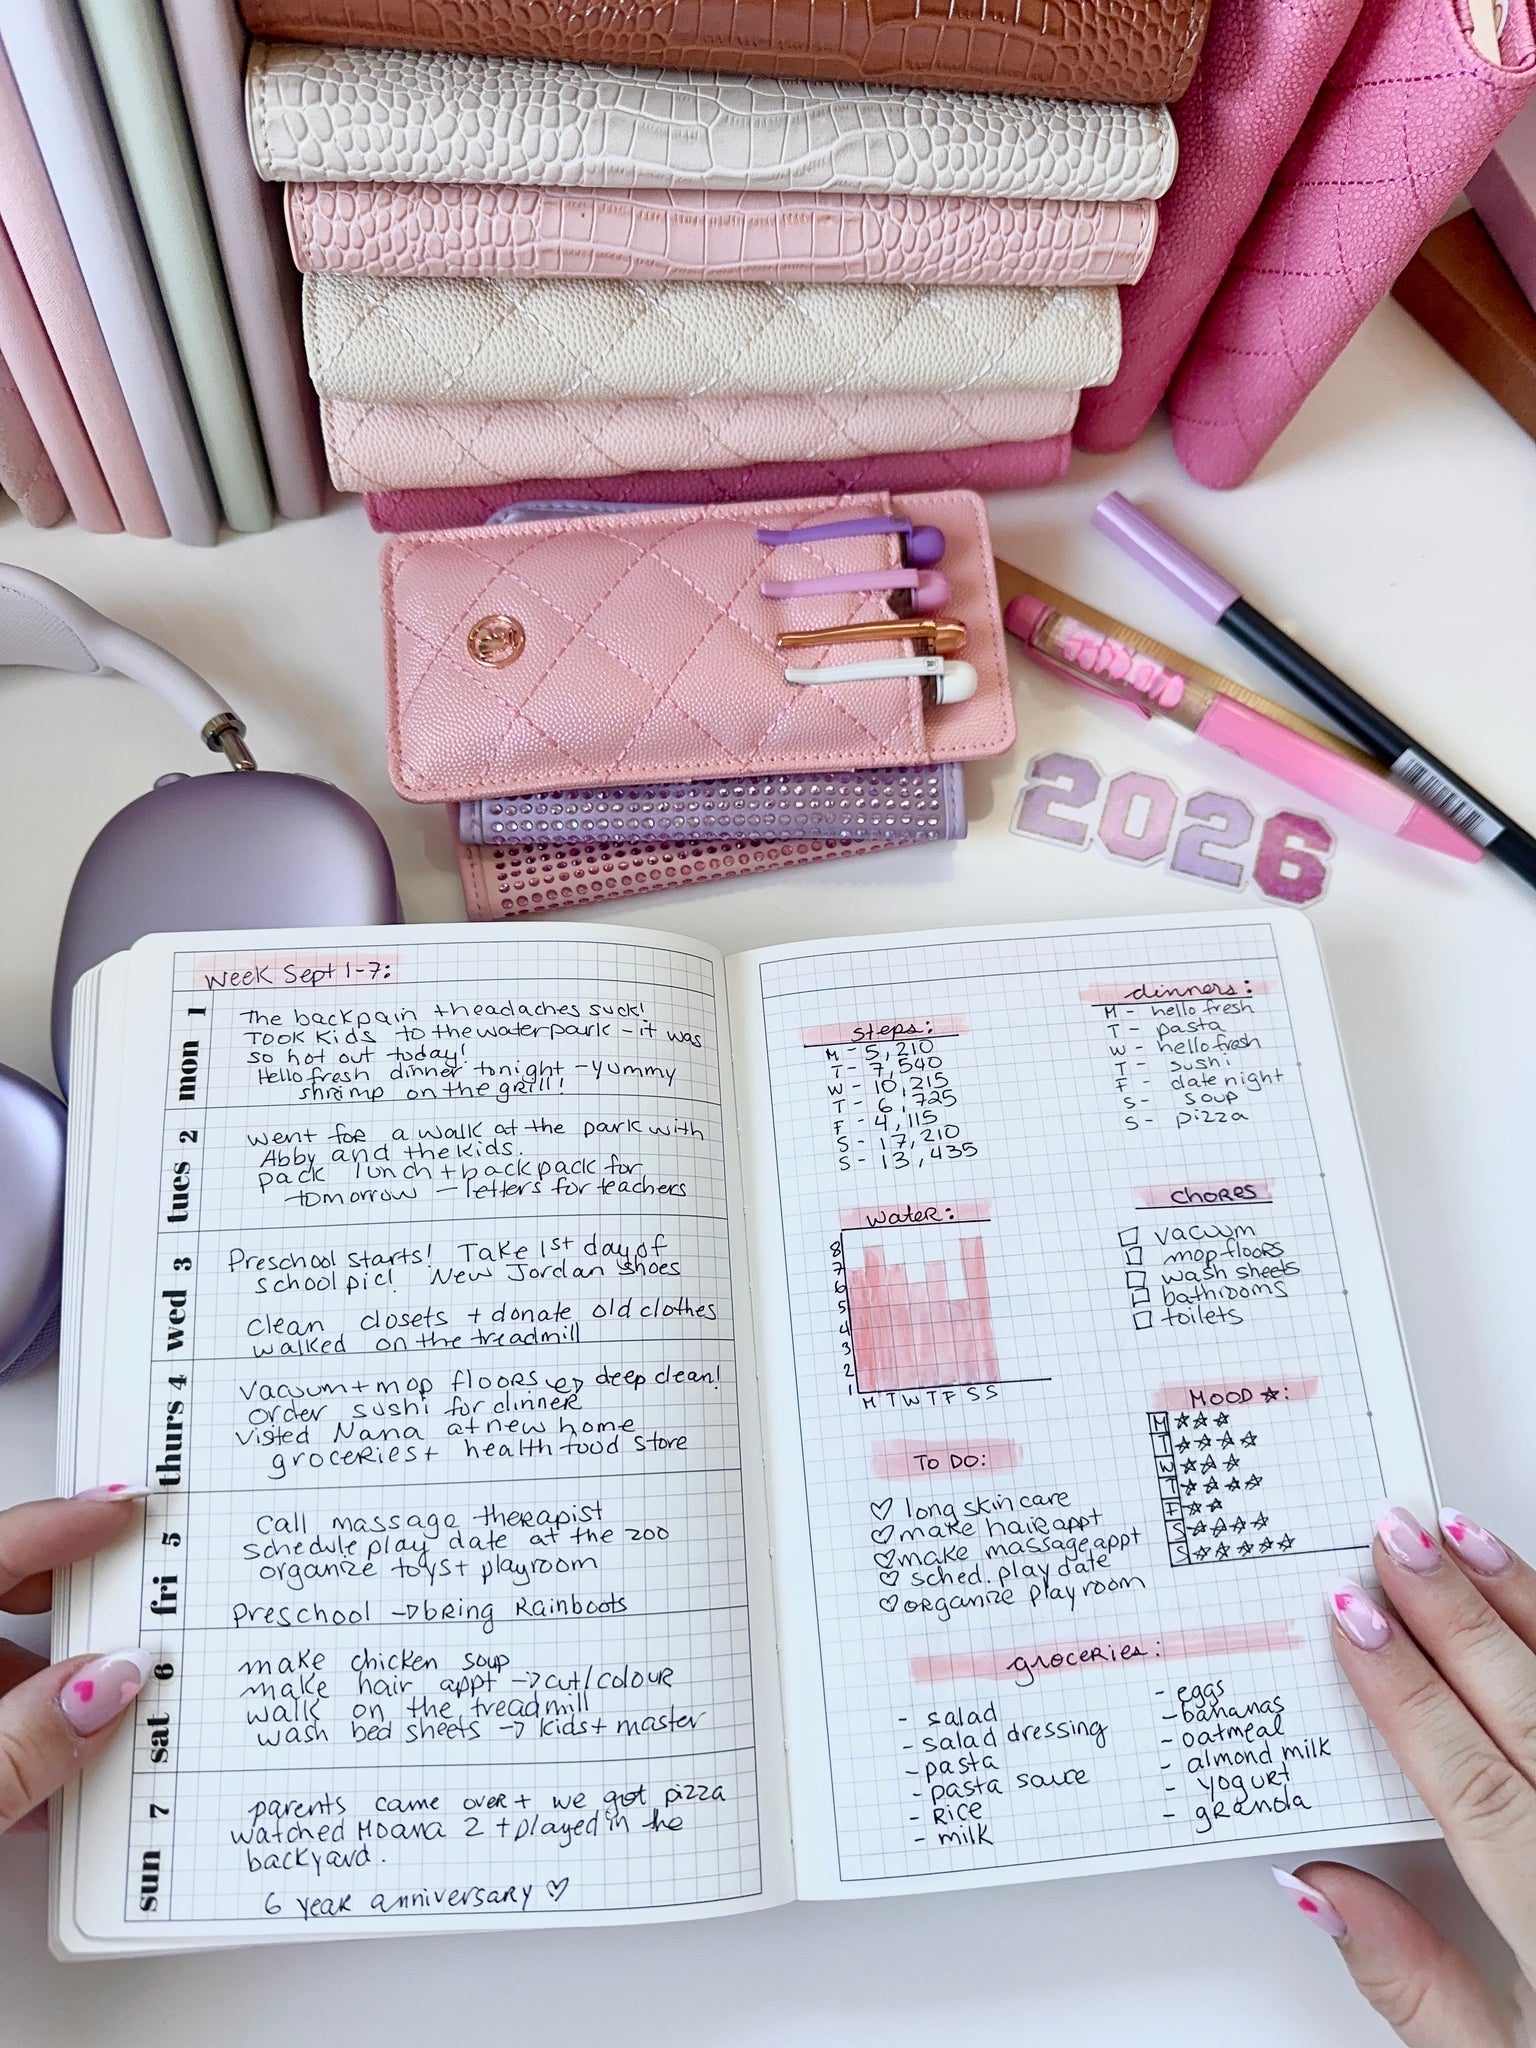 2026
Week Sept 1-7:
mon 1
The back pain + headaches suck!
Took kids to the waterpark - it was
so hot out today!
Hello fresh dinner tonight - yummy
shrimp on the grill!
tues 2
went for a walk at the park with
Abby and the kids.
pack lunch + backpack for
tomorrow - letters for teachers
wed 3
Preschool starts! Take 1st day of
school pic! New Jordan shoes
clean closets + donate old clothes
walked on the treadmill
thurs 4
vacuum + mop floors deep clean!
order sushi for dinner
Visted Nana at new home
groceries + health food store
fri 5
call massage therapist
schedule play date at the zoo
organize toys + playroom
Preschool → bring Rainboots
sat 6
make chicken soup
make hair appt → cut/colour
walk on the treadmill
wash bed sheets → kids + master
sun 7
parents came over + we got pizza
watched Moana 2 + played in the
backyard.
6 year anniversary ♡
steps:
M - 5,210
T - 7,540
W - 10,215
T - 6,725
F - 4,115
S - 17,210
S - 13,435
dinners:
M - hello fresh
T - pasta
W - hello fresh
T - sushi
F - date night
S - soup
S - pizza
water:
8
7
6
5
4
3
2
1
M T W T F S S
chores
☐ vacuum
☐ mop floors
☐ wash sheets
☐ bathrooms
☐ toilets
MOOD ☆:
M ☆☆☆
T ☆☆☆☆
W ☆☆☆
T ☆☆☆☆
F ☆☆
S ☆☆☆☆
S ☆☆☆☆☆
TO DO:
♡ long skin care
♡ make hair appt
♡ make massage appt
♡ sched. play date
♡ organize play room
groceries:
- salad
- salad dressing
- pasta
- pasta sauce
- rice
- milk
- eggs
- bananas
- oatmeal
- almond milk
- yogurt
- granola